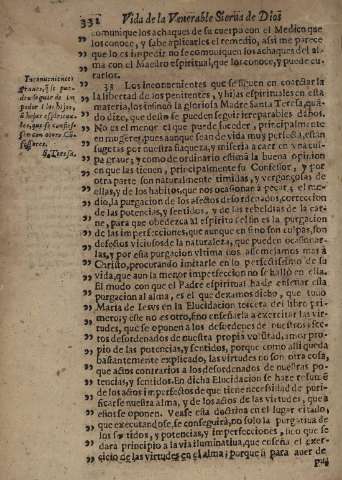 332 Vida de la Venerable Sierua de Dios
comunique los achaques de su cuerpo con el Medico que
los conoce, y sabe aplicarlos el remedio, assi me parece
que lo es impedir no se comuniquen los achaques del al-
ma con el Maestro espiritual, que los conoce, y puede cu-
rarlos.
Inconuenientes
graues, q̃ se pue-
den seguir de im-
pedir a las hijas,
ò hijos espiritua-
les, que se confies-
sen con otros Cõ-
fessores.
S. Teresa.
33 Los inconuenientes que se siguen en coartar la
la libertad de los penitentes, y hijas espirituales en esta
materia, los insinuò la gloriosa Madre Santa Teresa, quã-
do dize, que desto se pueden seguir irreparables daños.
No es el menor el que puede suceder, principalmente
en mugeres, pues aunque sean de vida muy perfecta, estàn
sugetas por nuestra flaqueza, y miseria a caer en vna cul-
pa graue; y como de ordinario estima la buena opinion
en que las tienen, principalmente su Confessor, y por
otra parte son naturalmente timidas, y vergonçosas de
ellas, y de los habitos, que nos ocasionan à pecar; el me-
dio, la purgacion de los afectos desordenados, correccion
de las potencias, y sentidos, y de las rebeldias de la car-
ne, para que obedezca al espiritu: el fin es la purgacion
de las imperfecciones, que aunque en si no son culpas, son
defectos viciosos de la naturaleza, que pueden ocasionar-
las, y por esta purgacion vltima nos assemejamos mas à
Christo, procurando imitarle en lo perfectissimo de su
vida, que aun la menor imperfeccion no se hallò en ella.
El modo con que el Padre espiritual ha de enseñar esta
purgacion al alma, es el que dexamos dicho, que tuvo
Maria de Iesvs en la Elucidacion tercera del libro pri-
mero; y este no es otro, sino enseñarla a exercitar las vir-
tudes, que se oponen à los desordenes de nuestros afec-
tos desordenados de nuestra propia volũtad, amor pro-
pio de las potencias, y sentidos, porque como alli queda
bastantemente explicado, las virtudes no son otra cosa,
que actos contrarios a los desordenados de nuestras po-
tencias, y sentidos. En dicha Elucidacion se haze resumẽ
de los actos imperfectos de que tiene necessidad de puri-
ficarse nuestra alma, y de los actos de las virtudes, que a
estos se oponen. Vease esta doctrina en el lugar citado,
que executandose, se conseguirà, no solo la purgatiua de
los sẽtidos, y potencias, y imperfecciones, sino que se
darà principio a la via iluminatiua, que enseña el exer-
cicio de las virtudes en el alma; porque si para auer de
pur-